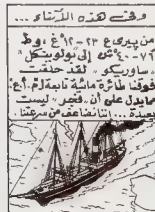 وفى هذه الأثناء ...
من بيرى ع ٢٣-١٢ غ، وط
٧٦-٤٠ ش إلى بولوبيكل
"ساوريكو" لقد حلقت
فوقنا طائرة مائية تابعة لـ م.أ.ع.
مايدل على أن "فجر" ليست
بعيدة... إننا نضاعف من سرعتنا.